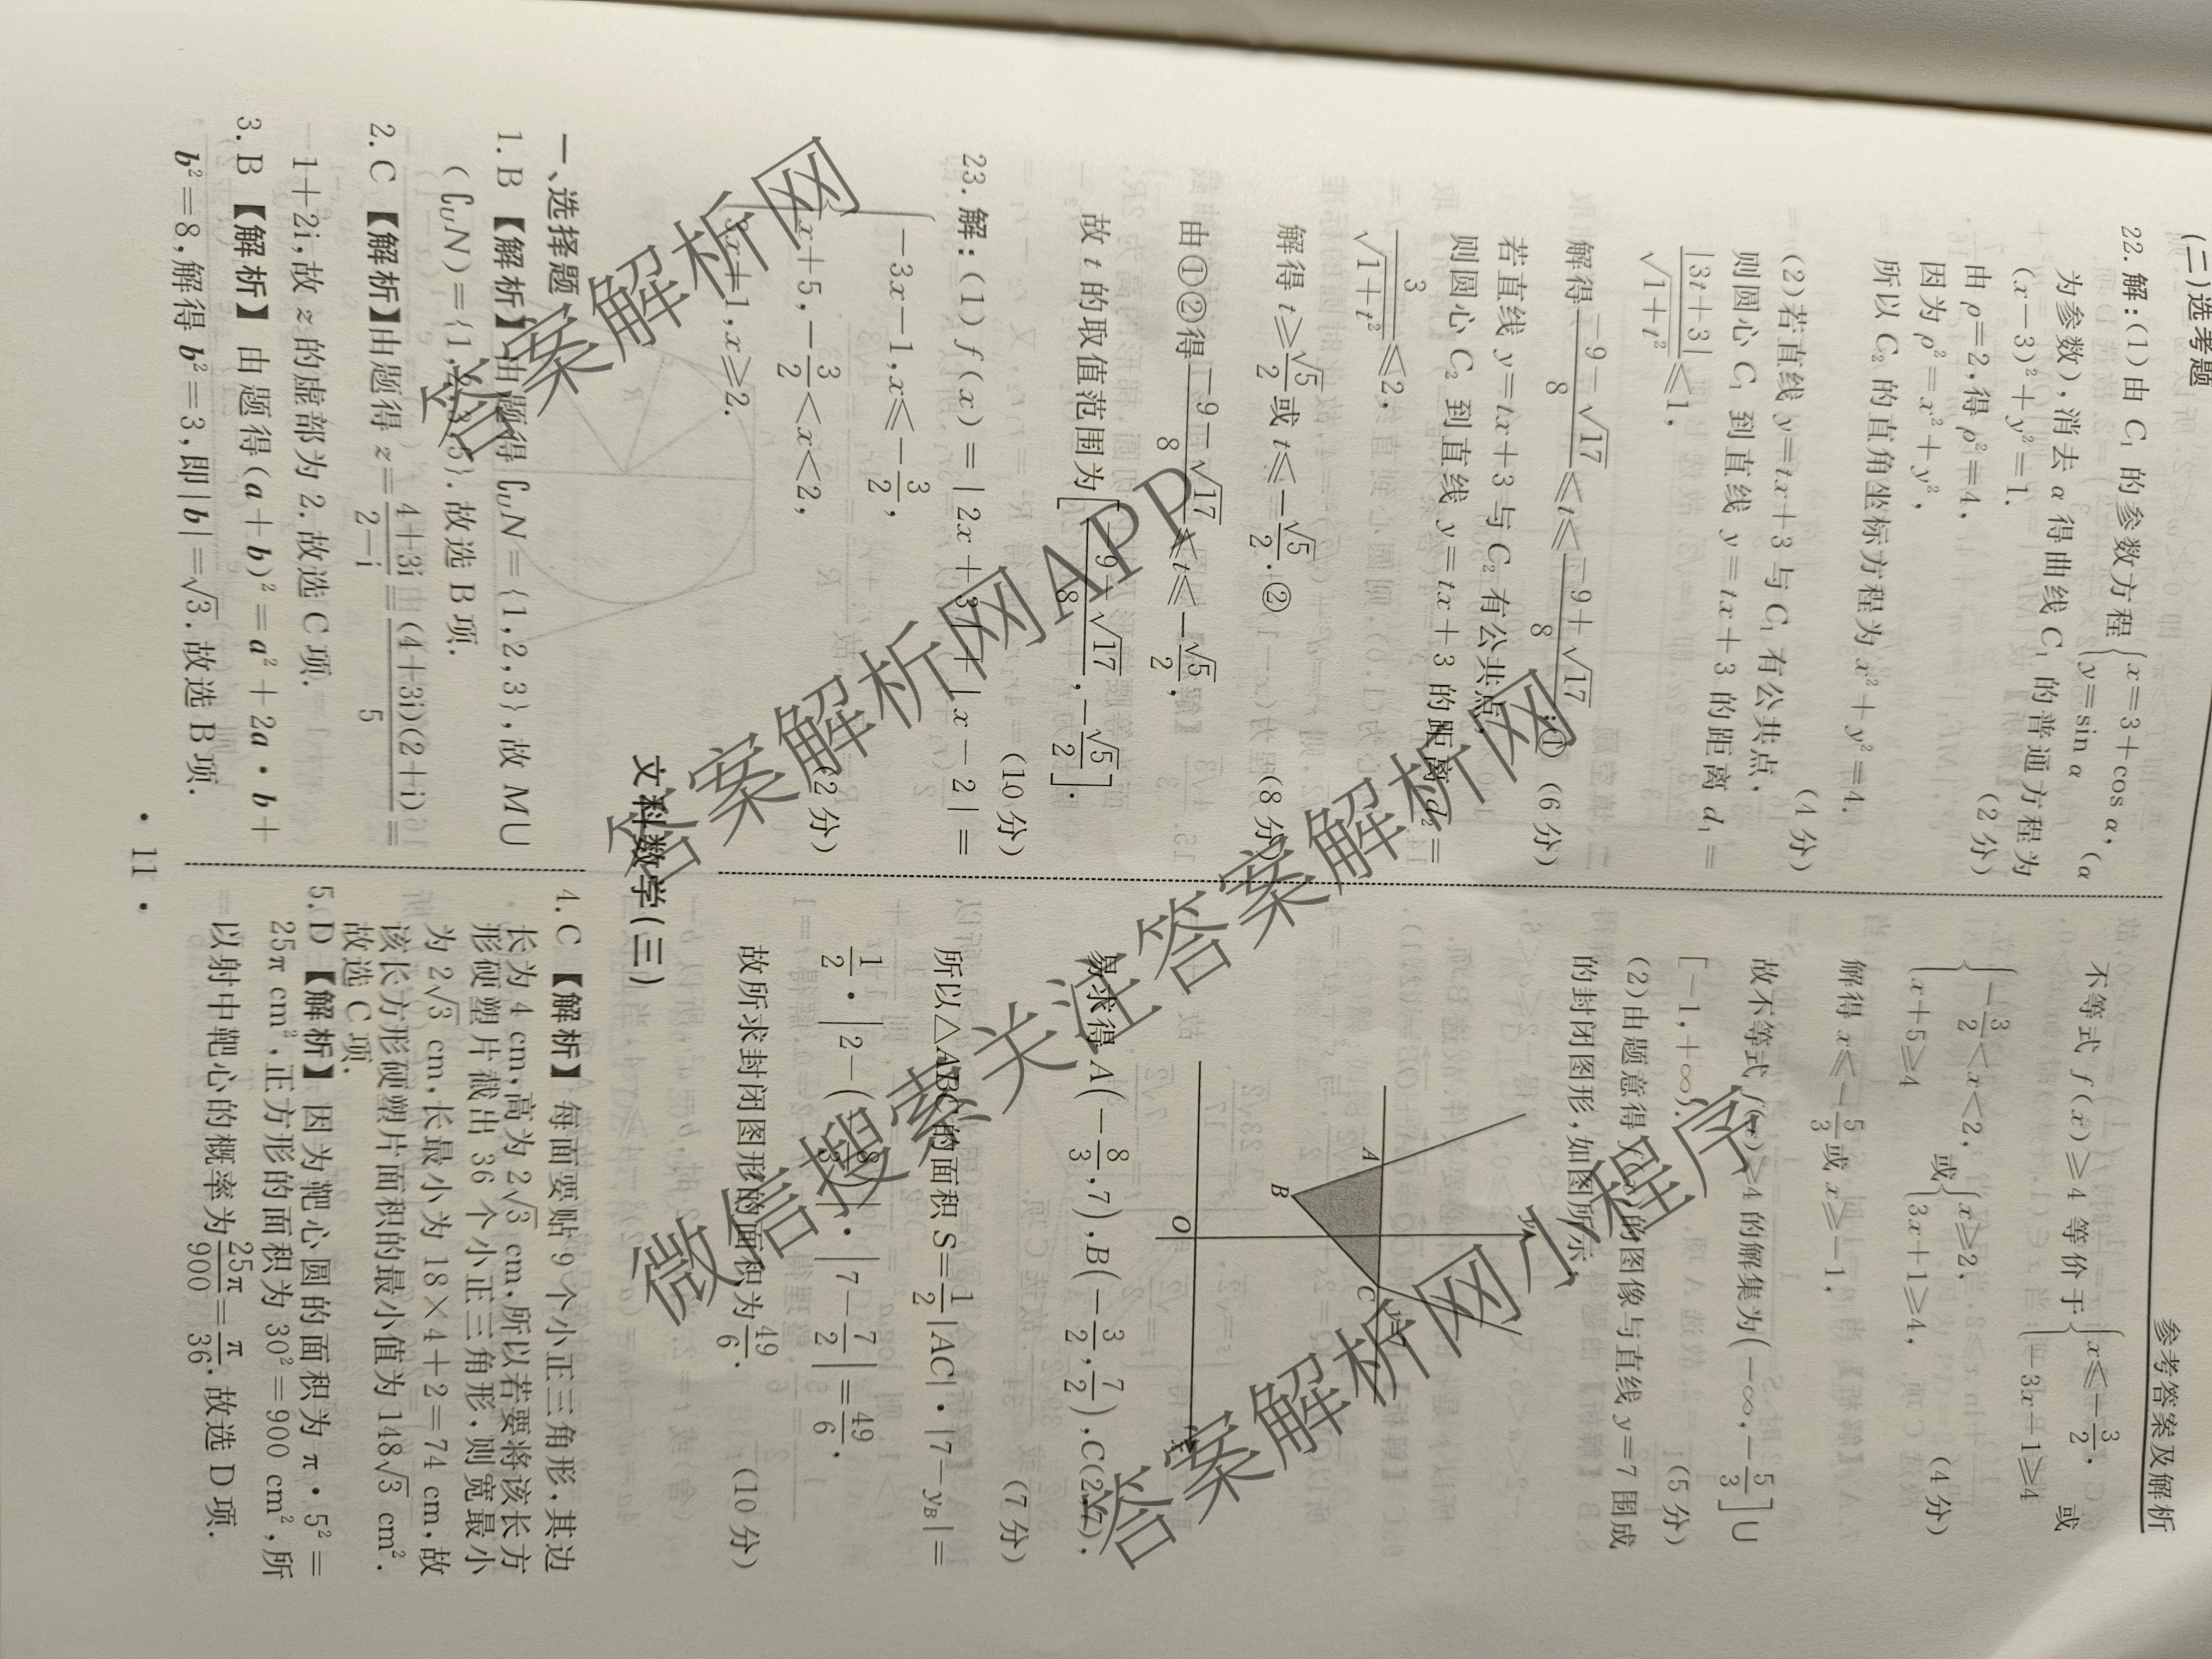 参考答案及解析
(二)选考题
22. 解:(1)由 C₁ 的参数方程{x=3+cos α, y=sin α (α
为参数),消去 α 得曲线 C₁ 的普通方程为
(x−3)²+y²=1. (2 分)
由 ρ=2,得 ρ²=4,
因为 ρ²=x²+y²,
所以 C₂ 的直角坐标方程为 x²+y²=4. (4 分)
(2)若直线 y=tx+3 与 C₁ 有公共点,
则圆心 C₁ 到直线 y=tx+3 的距离 d₁=
|3t+3|/√(1+t²)≤1,
解得(−9−√17)/8≤t≤(−9+√17)/8;① (6 分)
若直线 y=tx+3 与 C₂ 有公共点,
则圆心 C₂ 到直线 y=tx+3 的距离 d₂=
3/√(1+t²)≤2,
解得 t≥√5/2或 t≤−√5/2.② (8 分)
由①②得(−9−√17)/8≤t≤−√5/2,
故 t 的取值范围为[(−9−√17)/8,−√5/2].
(10 分)
23. 解:(1) f(x)=|2x+3|+|x−2|=
{−3x−1,x≤−3/2,
x+5,−3/2<x<2,
3x+1,x≥2. (2 分)
不等式 f(x)≥4 等价于{x≤−3/2, −3x−1≥4 或
{−3/2<x<2, x+5≥4 或{x≥2, 3x+1≥4, (4 分)
解得 x≤−5/3或 x≥−1,
故不等式 f(x)≥4 的解集为(−∞,−5/3]∪
[−1,+∞). (5 分)
(2)由题意得 f(x)的图像与直线 y=7 围成
的封闭图形,如图所示,
y
A
C
y=7
B
O
x
易求得 A(−8/3,7),B(−3/2,7/2),C(2,7),
(7 分)
所以△ABC 的面积 S=1/2|AC|·|7−y_B|=
1/2·|2−(−8/3)|·|7−7/2|=49/6.
故所求封闭图形的面积为49/6. (10 分)
文科数学(三)
一、选择题
1. B 【解析】由题得 ∁_U N={1,2,3},故 M∪
(∁_U N)={1,2,3,5}. 故选 B 项.
2. C 【解析】由题得 z=(4+3i)/(2−i)=(4+3i)(2+i)/5=
1+2i,故 z 的虚部为 2. 故选 C 项.
3. B 【解析】 由题得(a+b)²=a²+2a·b+
b²=8,解得 b²=3,即|b|=√3. 故选 B 项.
4. C 【解析】 每面要贴 9 个小正三角形,其边
长为 4 cm,高为 2√3 cm,所以若要将该长方
形硬塑片截出 36 个小正三角形,则宽最小
为 2√3 cm,长最小为 18×4+2=74 cm,故
该长方形硬塑片面积的最小值为 148√3 cm².
故选 C 项.
5. D 【解析】 因为靶心圆的面积为 π·5²=
25π cm²,正方形的面积为 30²=900 cm²,所
以射中靶心的概率为25π/900=π/36. 故选 D 项.
· 11 ·
答案解析网
答案解析网APP
微信搜索关注答案解析网
答案解析网小程序